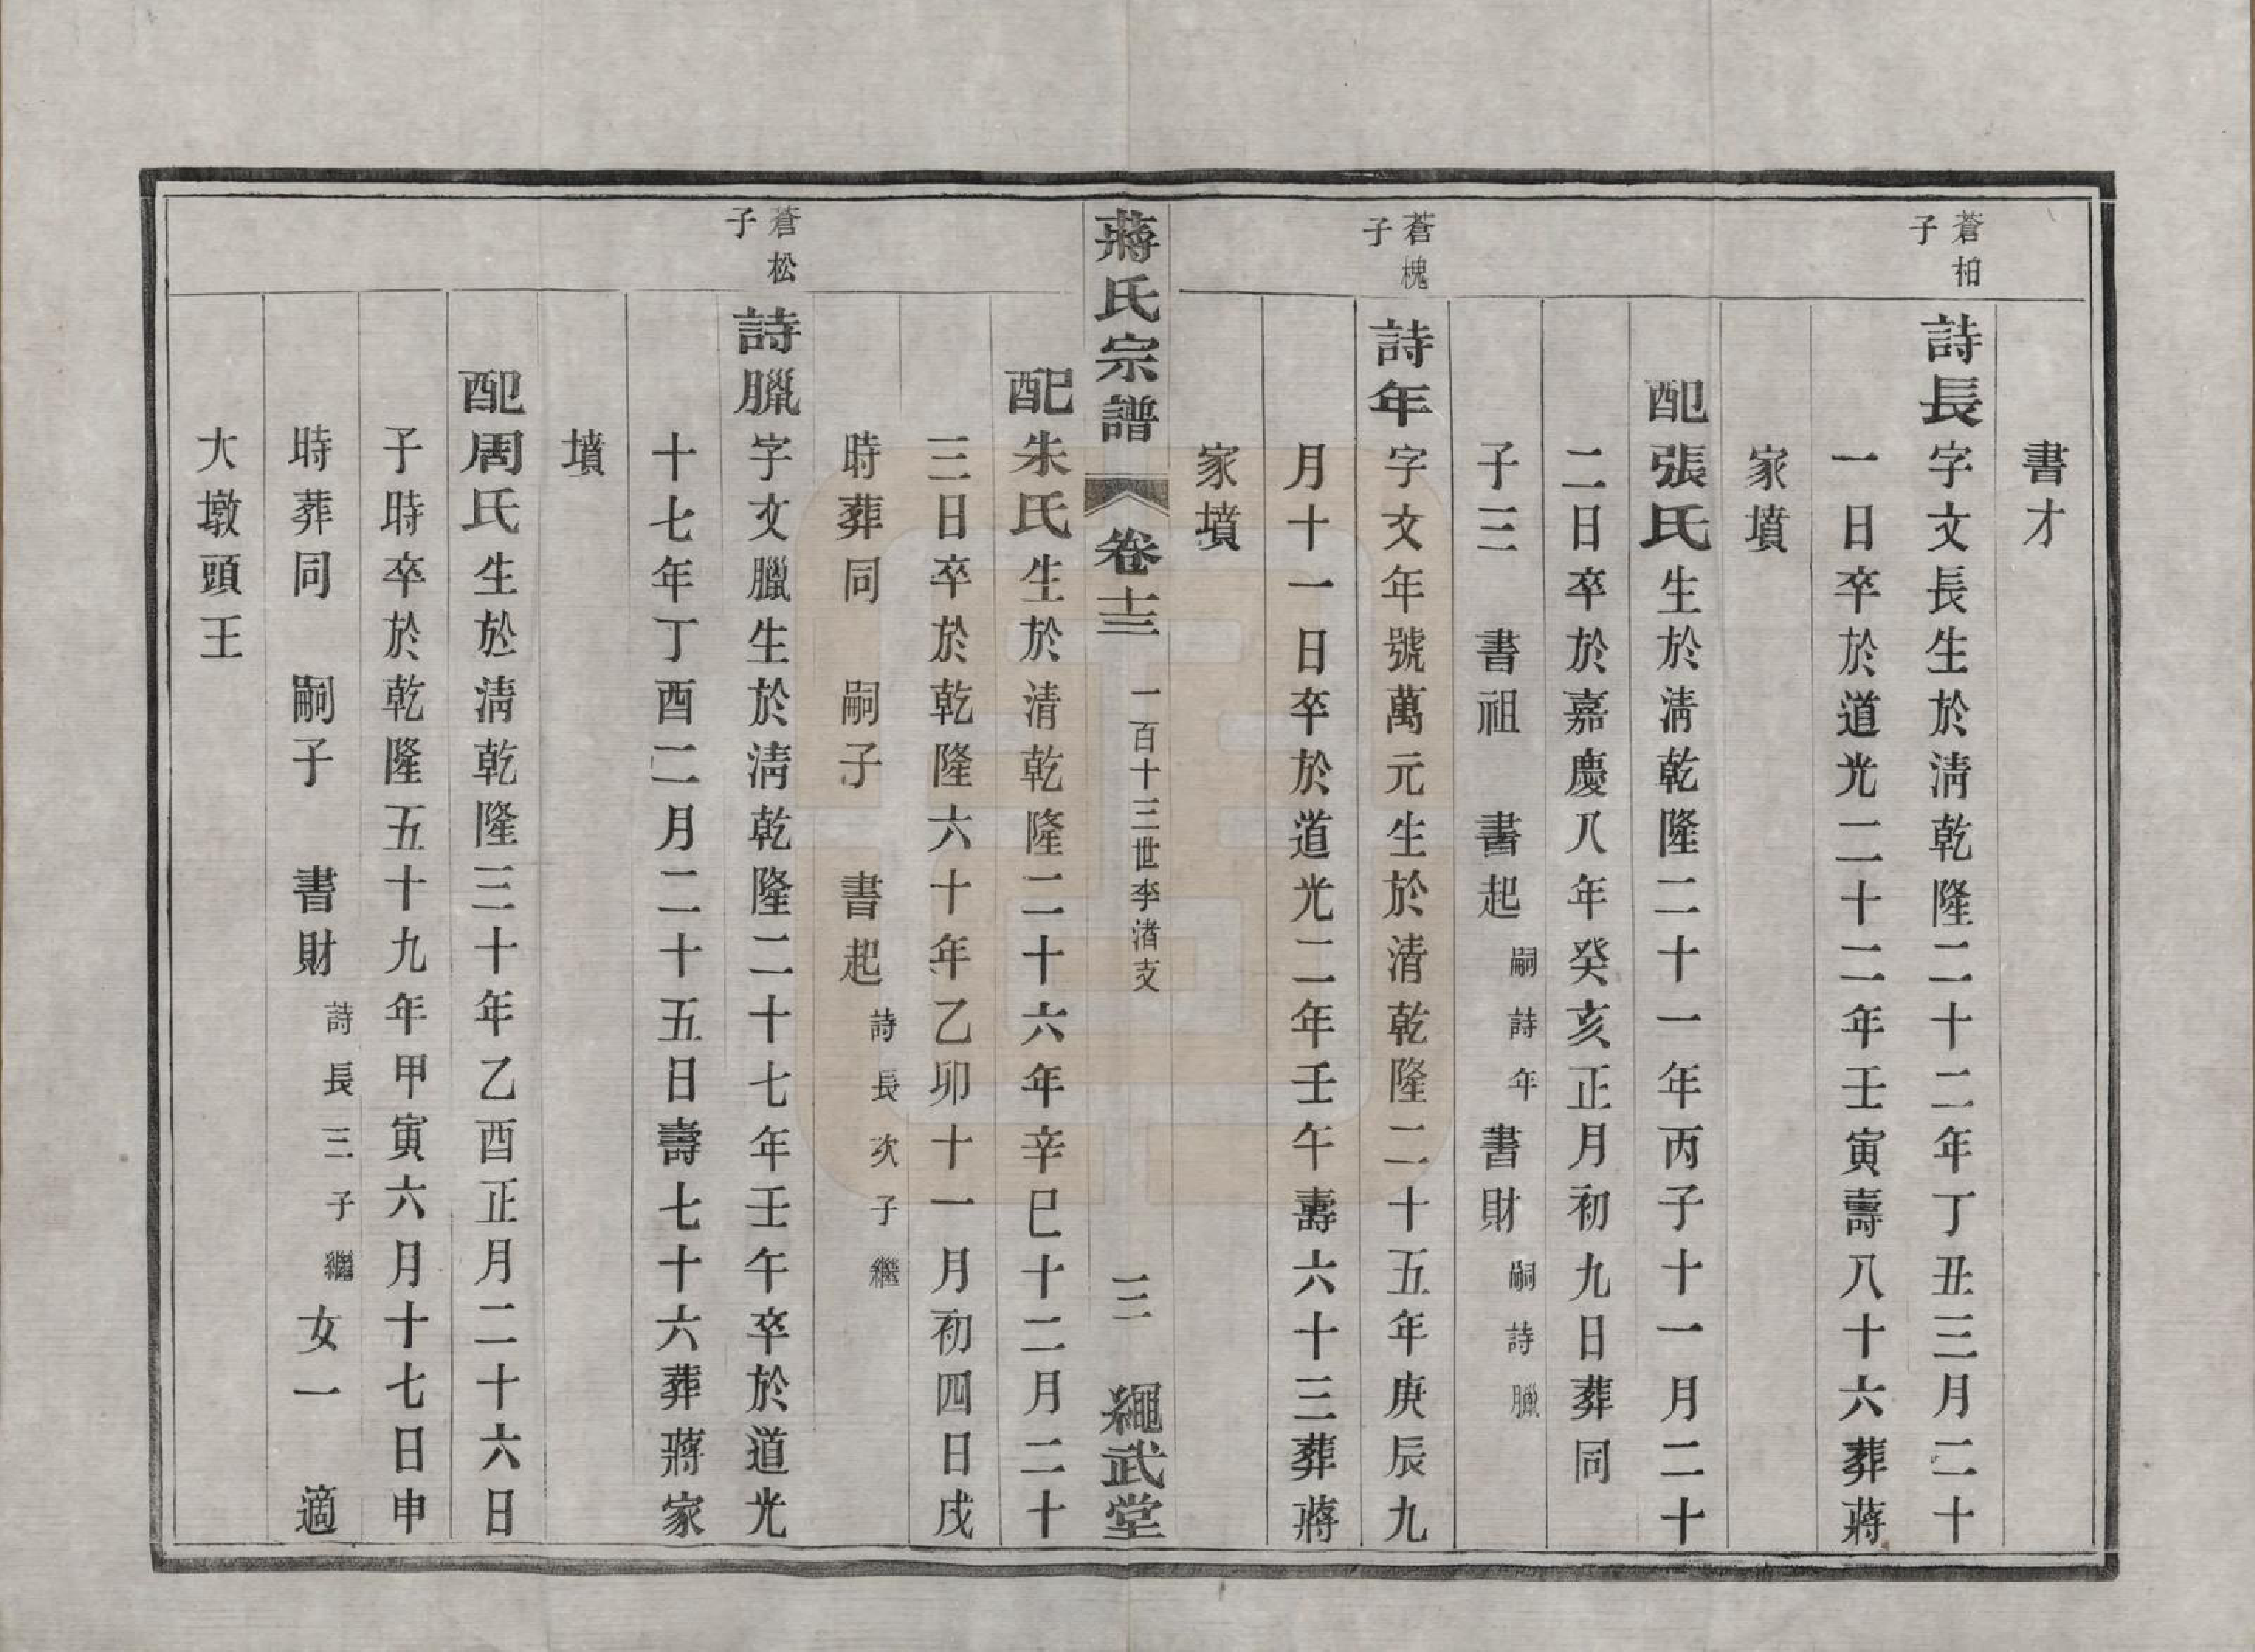 書才
蒼柏
子
詩長字文長生於淸乾隆二十二年丁丑三月二十
一日卒於道光二十二年壬寅壽八十六葬蔣
家墳
配張氏生於淸乾隆二十一年丙子十一月二十
二日卒於嘉慶八年癸亥正月初九日葬同
子三　書祖　書起嗣詩年書財嗣詩臘
蒼槐
子
詩年字文年號萬元生於清乾隆二十五年庚辰九
月十一日卒於道光二年壬午壽六十三葬蔣
家墳
蔣氏宗譜　卷十三　一百十三世李渚支　三　繩武堂
配朱氏生於清乾隆二十六年辛巳十二月二十
三日卒於乾隆六十年乙卯十一月初四日戌
時葬同　嗣子　書起詩長次子繼
蒼松
子
詩臘字文臘生於淸乾隆二十七年壬午卒於道光
十七年丁酉二月二十五日壽七十六葬蔣家
墳
配周氏生於淸乾隆三十年乙酉正月二十六日
子時卒於乾隆五十九年甲寅六月十七日申
時葬同　嗣子　書財詩長三子繼女一　適
大墩頭王